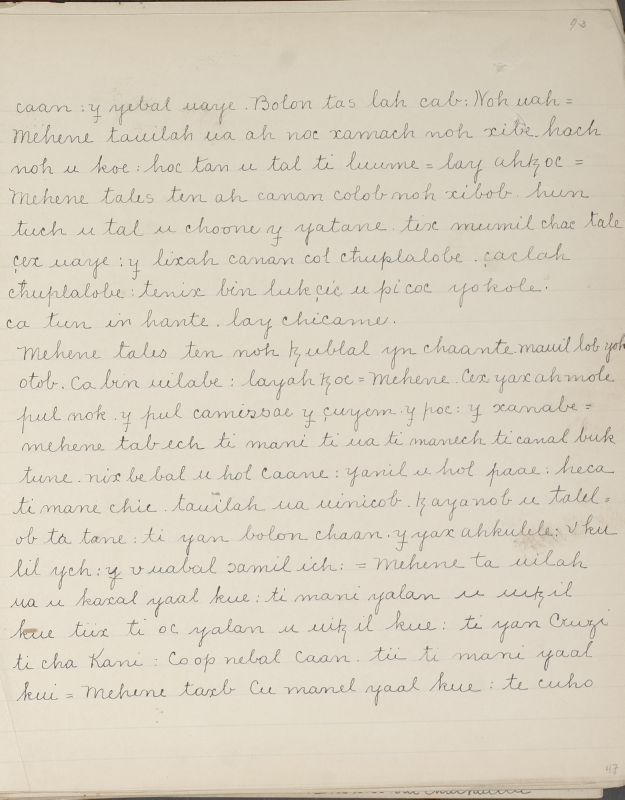 93
caan : y yebal uaye . Bolon tas lah cab : Noh uah =
Mehene tauilah ua ah noc xamach noh xibe hach
noh u koc : hoc tan u tal ti luume = lay ahꜩoc =
Mehene tales ten ah canan colob noh xibob . hun
tuch u tal u choone y yatane . tix mumil chac tale
çex uaye : y lixah canan col chuplalobe . çaclah
chuplalobe : tenix bin lukçic u picoc yokole .
ca tun in hante . lay chicame .
Mehene tales ten noh ꜩublal yn chaante . mauil lob yok
otob . Ca bin uilabe : layahꜩoc = Mehene . Cex yax ah mole
pul nok . y pul camissae y çuyem . y poc : y xanabe =
mehene tab ech ti mani ti ua ti manech ti canal buk
tune . nix be bal u hol Caane : yanil u hol paae : heca
ti mane chie . tauilah ua uinicob . ꜩayanob u talel =
ob ta tane : ti yan bolon chaan . y yax ahkulele : v ku
lil ych : y v uabal samil ich : = Mehene ta uilah
ua u kaxal yaal kue : ti mani yalan u uiꜩil
kue tiix ti oc yalan u uiꜩ il kue : ti yan Cruzi
ti cha Kani : Coop nebal Caan . tii ti mani yaal
kui = Mehene taxb Cu manel yaal kue : te cuho
47